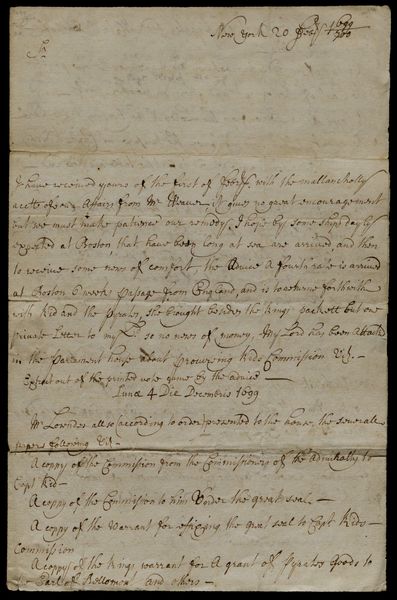 New York 20 Feb 1699/700
Sr
I have received yours of the first of Febr with the mallancholly
acctt of our Affairs from Mr Weaver it gives no great encouragement
but we must make patience our remedy I hope by some ships dayly
expected at Boston that have been long at sea are arrived, and then
to receive some news of comfort, the Advice A fourth rate is arrived
at Boston 6 weeks Passage from England, and is to returne forthwith
with Kid and the Pyrates, she brought besides the Kings packett but one
private Letter to my Ld so no news of money, My Lord has been
in the Parliament house about procureing Kids Commission Viz. —
Extract out of the printed vote came by the Advice —
Lunæ 4 Die Decembris 1699
Mr Lowndes allso (according to order) presented to the house, the severall
papers following Viz —
A coppy of the Commission from the Commissioners of the Admiralty to
Capt Kid —
A coppy of the Commission to him Vnder the great seal —
A coppy of the Warrant for affixing the great seal to Capt Kids —
Commission
A coppy of the Kings warrant for A grant of Pyrates Goods to
Earl of Bellomont and others —